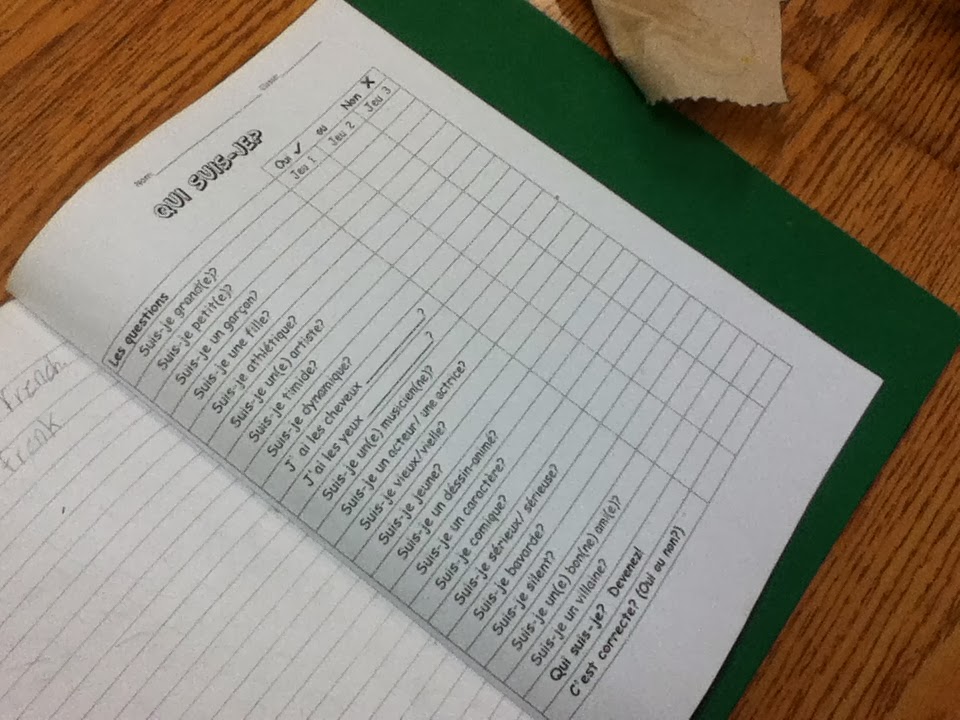 Nom: Classe:
QUI SUIS-JE?
Oui ✓ ou Non X
Les questions Jeu 1 Jeu 2 Jeu 3
Suis-je grand(e)?
Suis-je petit(e)?
Suis-je un garçon?
Suis-je une fille?
Suis-je athlétique?
Suis-je un(e) artiste?
Suis-je timide?
Suis-je dynamique?
J'ai les cheveux ________?
J'ai les yeux ________?
Suis-je un(e) musicien(ne)?
Suis-je un acteur/ une actrice?
Suis-je vieux/vielle?
Suis-je jeune?
Suis-je un déssin-animé?
Suis-je un caractère?
Suis-je comique?
Suis-je sérieux/ sérieuse?
Suis-je bavarde?
Suis-je silent?
Suis-je un(e) bon(ne) ami(e)?
Suis-je un villaine?
Qui suis-je? Devenez!
C'est correcte? (Oui ou non?)
French
Frenk